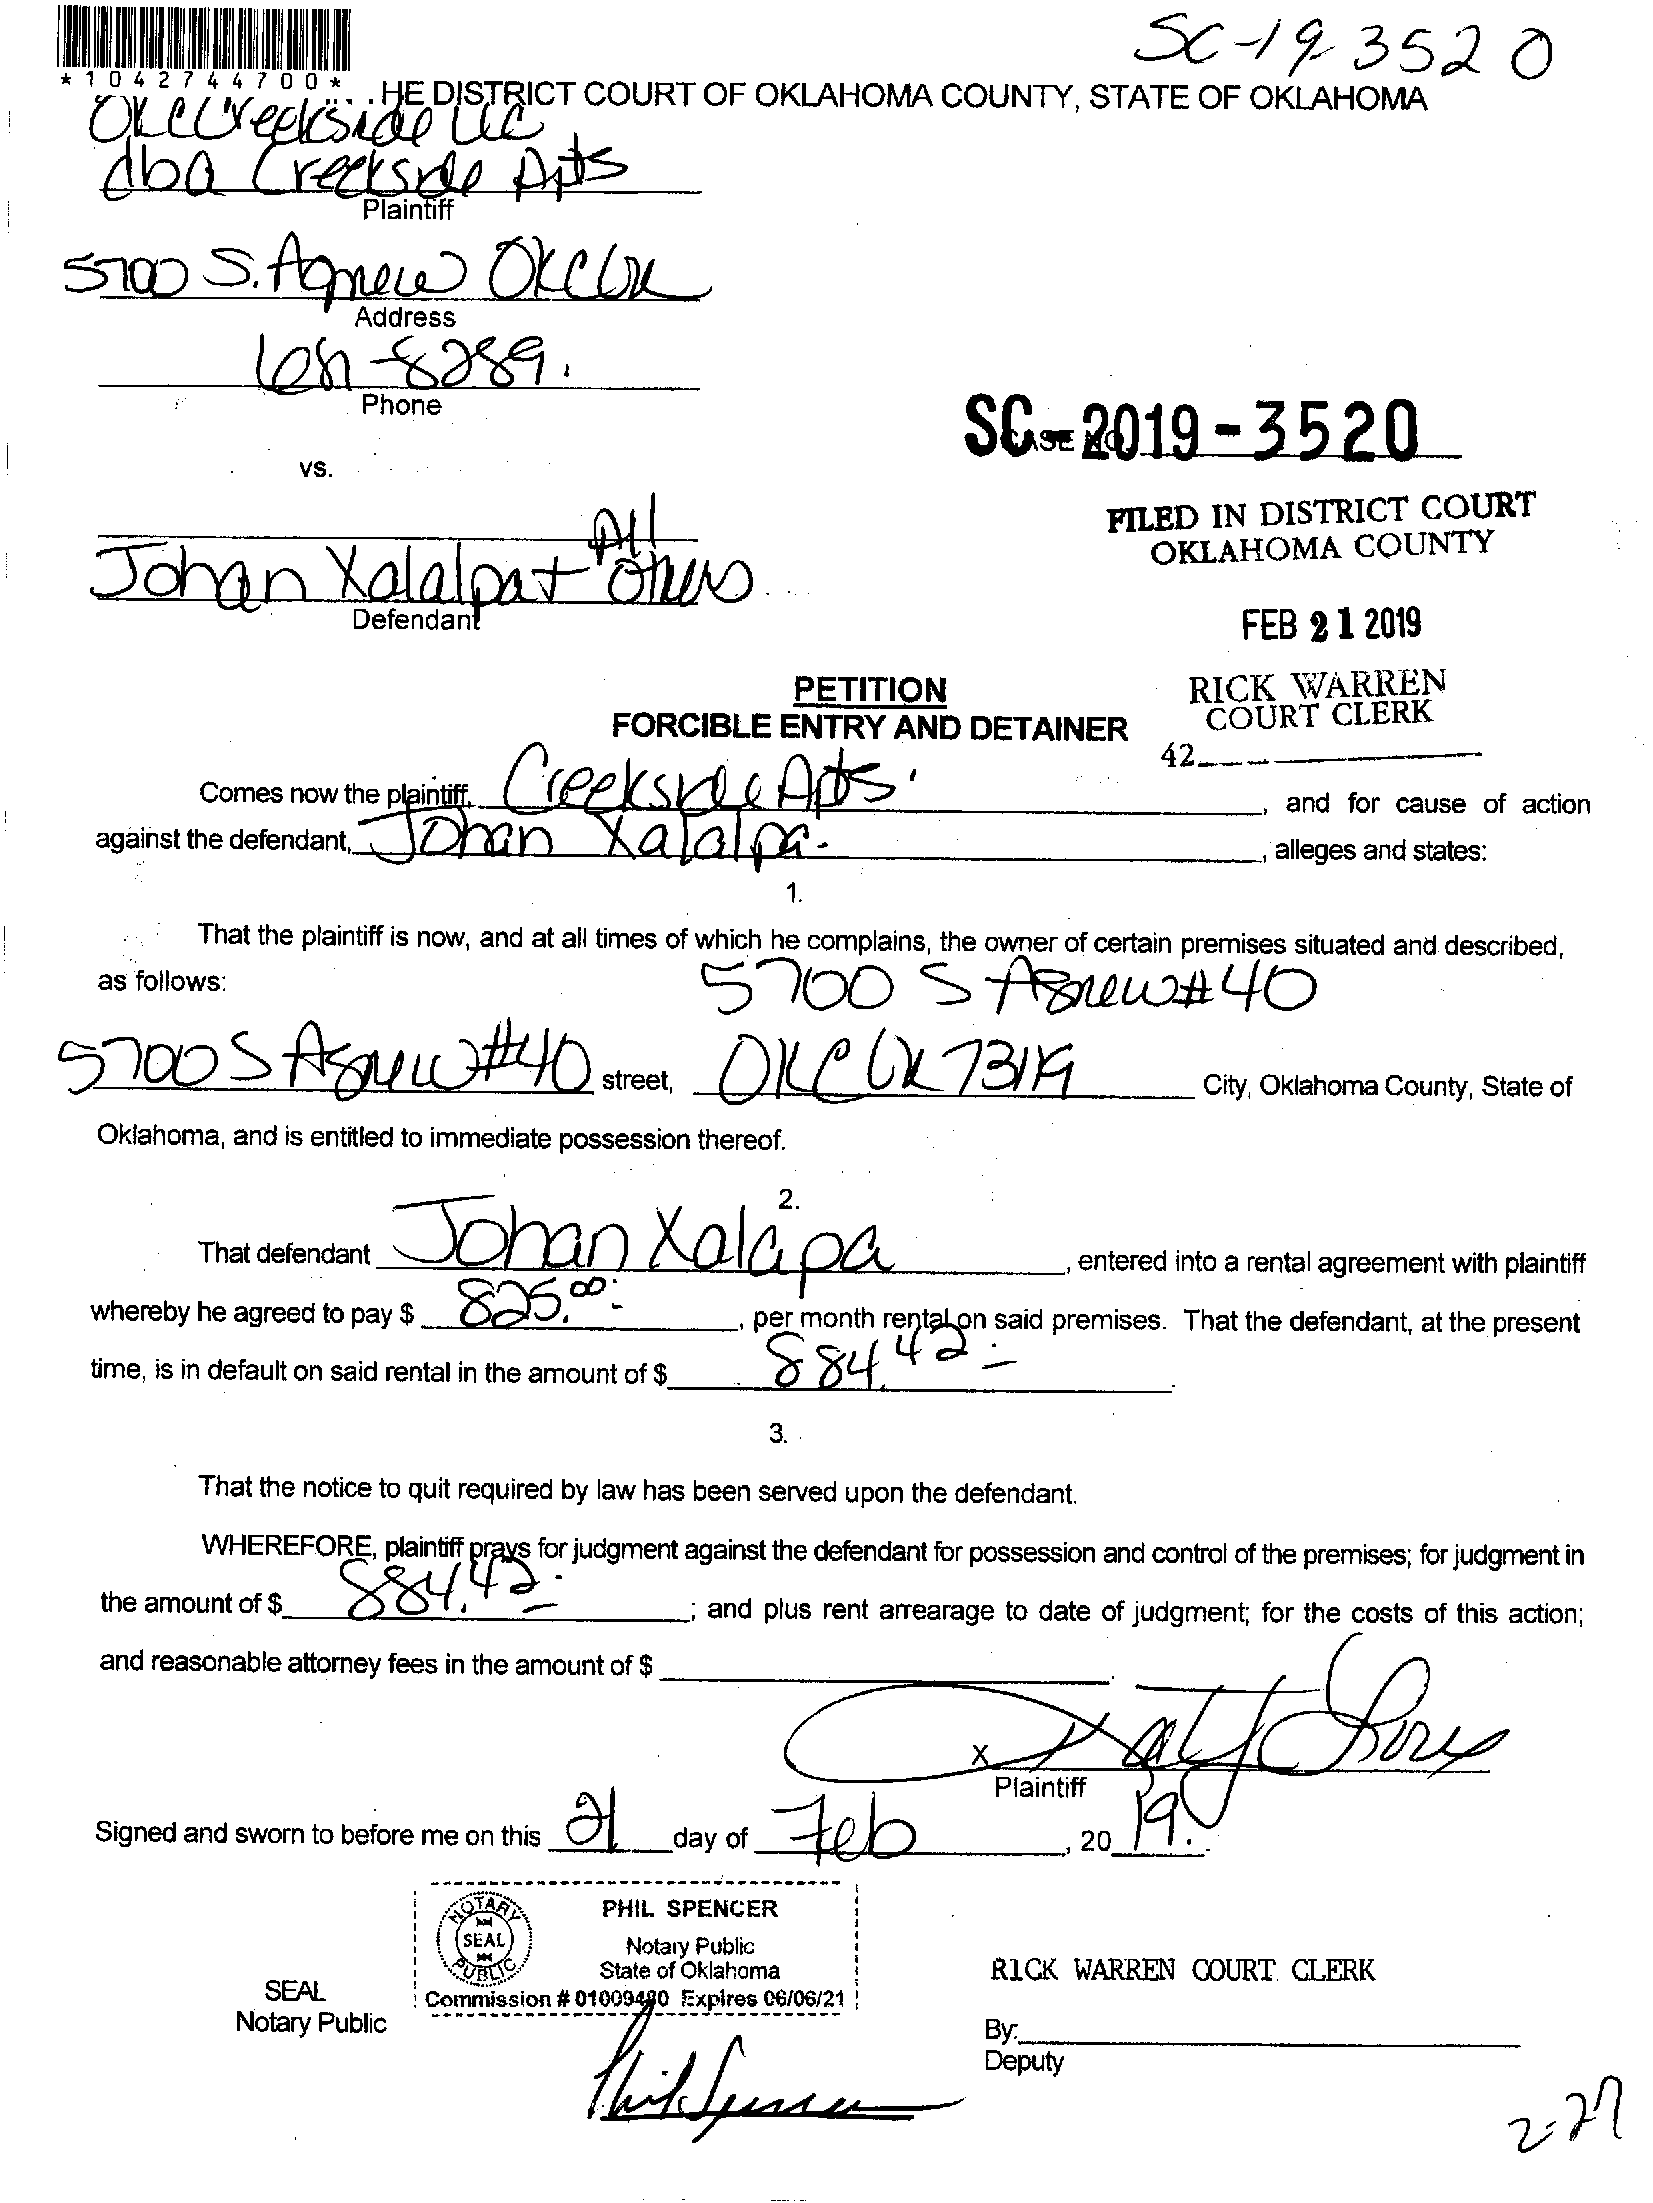 SC-19-3520
*1042744700*
HE DISTRICT COURT OF OKLAHOMA COUNTY, STATE OF OKLAHOMA
OKC Creekside LLC
dba Creekside Apts
Plaintiff
5700 S. Agnew OKC OK
Address
-8289.
Phone
SC-2019-3520
CASE NO.
vs.
FILED IN DISTRICT COURT
OKLAHOMA COUNTY
All
Johan Xalalpa + Others
Defendant
FEB 21 2019
PETITION
FORCIBLE ENTRY AND DETAINER
RICK WARREN
COURT CLERK
42
Comes now the plaintiff, Creekside Apts. , and for cause of action
against the defendant, Johan Xalalpa. , alleges and states:
1.
That the plaintiff is now, and at all times of which he complains, the owner of certain premises situated and described,
as follows: 5700 S Agnew #40
5700 S Agnew #40 street, OKC OK 73119 City, Oklahoma County, State of
Oklahoma, and is entitled to immediate possession thereof.
2.
That defendant Johan Xalapa , entered into a rental agreement with plaintiff
whereby he agreed to pay $ 825.00 , per month rental on said premises. That the defendant, at the present
time, is in default on said rental in the amount of $ 884.42 .
3.
That the notice to quit required by law has been served upon the defendant.
WHEREFORE, plaintiff prays for judgment against the defendant for possession and control of the premises; for judgment in
the amount of $ 884.42 ; and plus rent arrearage to date of judgment; for the costs of this action;
and reasonable attorney fees in the amount of $ .
X
Plaintiff
Signed and sworn to before me on this 21 day of Feb , 20 19.
NOTARY SEAL PUBLIC
PHIL SPENCER
Notary Public
State of Oklahoma
Commission # 01009480 Expires 06/06/21
SEAL
Notary Public
RICK WARREN COURT CLERK
By:
Deputy
Phil Spencer
2-27